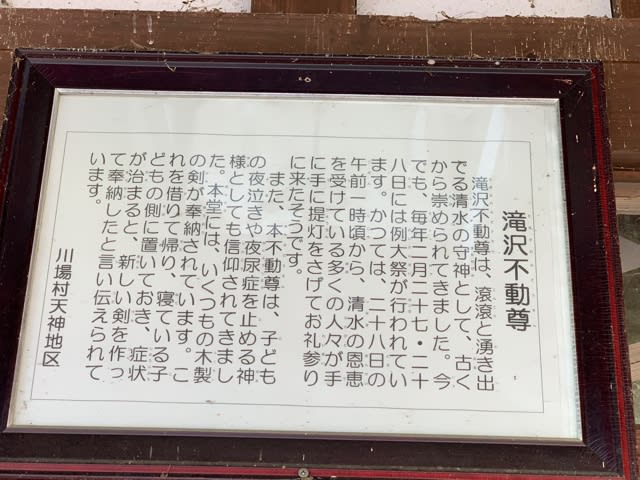 滝沢不動尊
滝沢不動尊は、滾滾と湧き出
でる清水の守神として、古く
から崇められてきました。今
でも、毎年二月二十七・二十
八日には例大祭が行われてい
ます。かつては、二十八日の
午前一時頃から、清水の恩恵
を受けている多くの人々が手
に手に提灯をさげてお礼参り
に来たそうです。
また、本不動尊は、子ども
の夜泣きや夜尿症を止める神
様としても信仰されてきまし
た。本堂には、いくつもの木製
の剣が奉納されています。こ
れを借りて帰り、寝ている子
どもの側に置いておき、症状
が治まると、新しい剣を作っ
て奉納したと言い伝えられて
います。
川場村天神地区